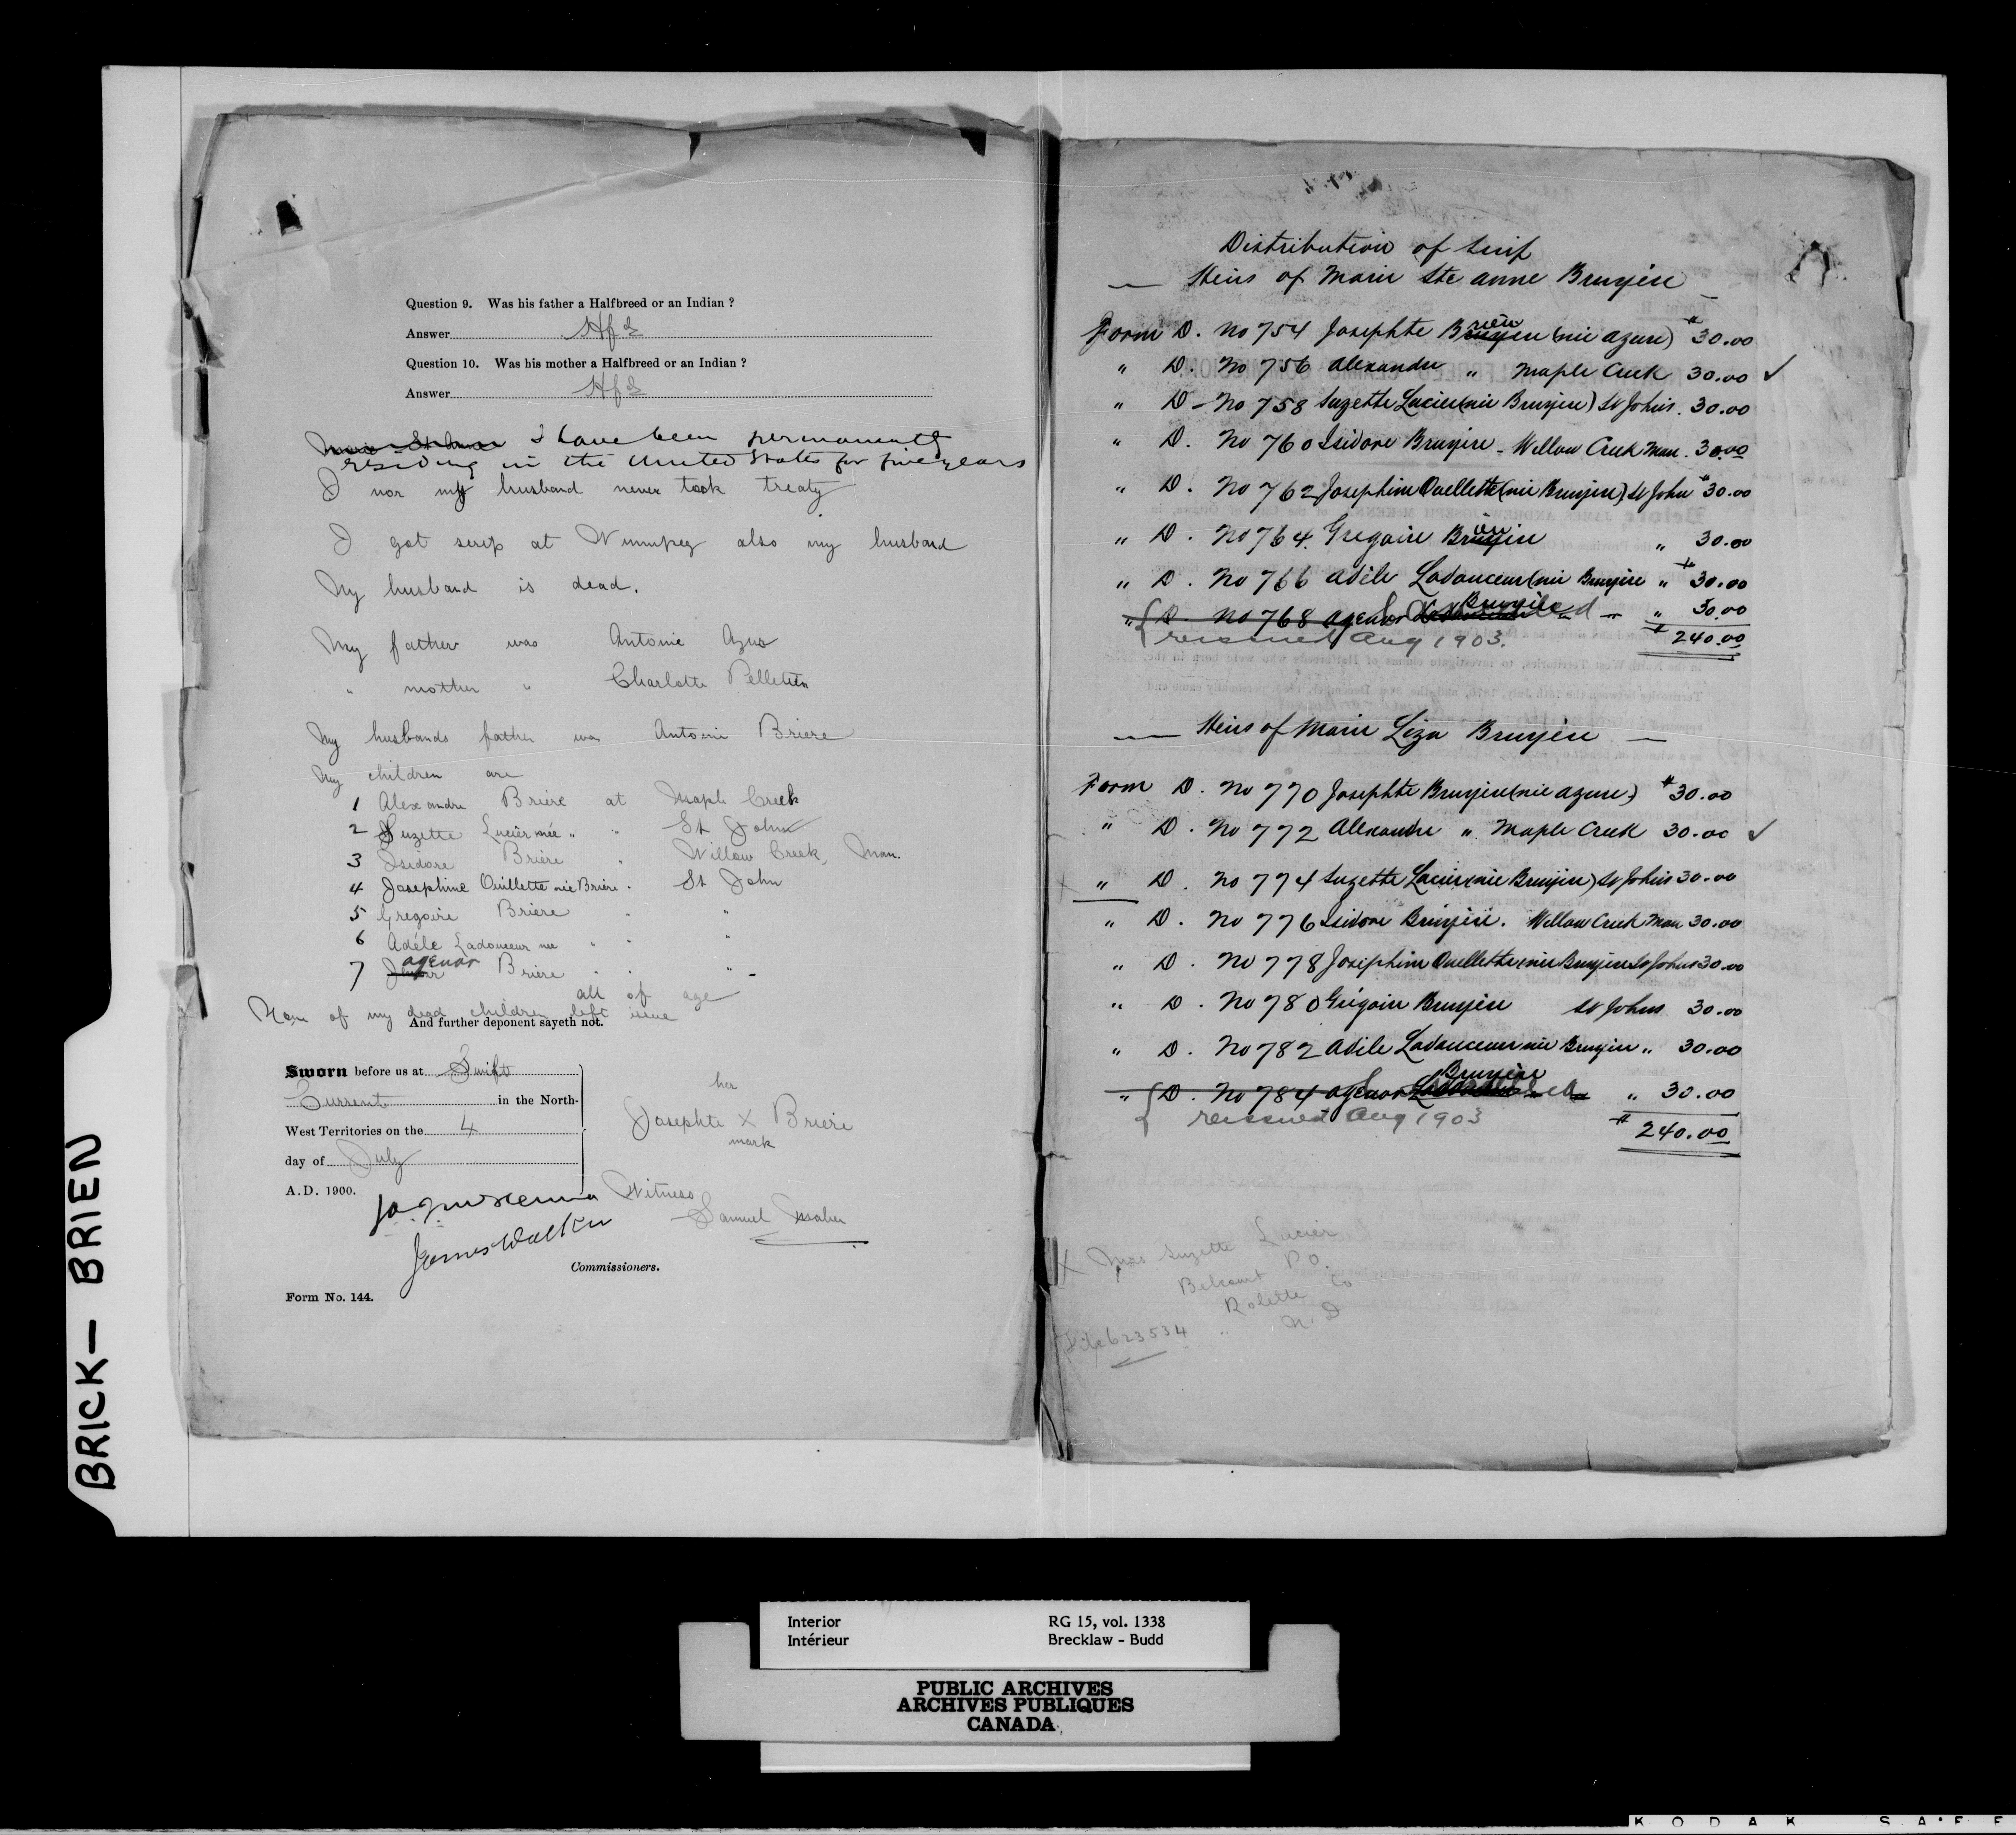 Question 9. Was his father a Halfbreed or an Indian ?
Answer Hfd
Question 10. Was his mother a Halfbreed or an Indian ?
Answer Hfd
I have been permanently
residing in the United States for five years
I nor my husband never took treaty
I got scrip at Winnipeg also my husband
My husband is dead.
My father was Antoine Azur
" mother " Charlotte Pelletier
My husbands father was Antoine Briere
My children are
1 Alexandre Briere at Maple Creek
2 Suzette Lucier née " " St John
3 Isidore Briere " Willow Creek, Man.
4 Josephine Ouillette née Briere " St John
5 Gregoire Briere " "
6 Adéle Ladouceur nee " " "
7 agenor Briere " " "
all of age
None of my dead children left issue
And further deponent sayeth not.
Sworn before us at Swift
Current in the North-
West Territories on the 4
day of July
A.D. 1900.
her
Josephte X Briere
mark
Witness
Samuel
James Walker
Commissioners.
Form No. 144.
Distribution of Scrip
Heirs of Marie Ste anne Bruyère
Form D. No 754 Josephte (née azure) $30.00
" D. No 756 Alexandre " Maple Creek 30.00 ✓
" D. No 758 Suzette Lucier (née Bruyère) St Johns. 30.00
" D. No 760 Isidore Bruyère - Willow Creek Man. 30.00
" D. No 762 Josephine Ouellette (née Bruyère) St John 30.00
" D. No 764 Gregoire " 30.00
" D. No 766 Adèle Ladouceur (née Bruyère " 30.00
" D. No 768 agenor Bruyère " 30.00
reissued Aug 1903.
$240.00
Heirs of Marie Liza Bruyère
Form D. No 770 Josephte Bruyère (née azure) $30.00
" D. No 772 Alexandre " Maple Creek 30.00 ✓
X " D. No 774 Suzette Lucier (née Bruyère) St Johns 30.00
" D. No 776 Isidore Bruyère. Willow Creek Man 30.00
" D. No 778 Josephine Ouellette (née Bruyère St Johns 30.00
" D. No 780 Grégoire Bruyère St Johns 30.00
" D. No 782 Adèle Ladouceur née Bruyère " 30.00
" D. No 784 agenor Bruyère " 30.00
reissued Aug 1903
$240.00
X Mrs Suzette Lucier
Belcourt P.O.
Rolette Co
N.D
File 623534
BRICK — BRIEN
Interior RG 15, vol. 1338
Intérieur Brecklaw - Budd
PUBLIC ARCHIVES
ARCHIVES PUBLIQUES
CANADA
KODAK SAFE